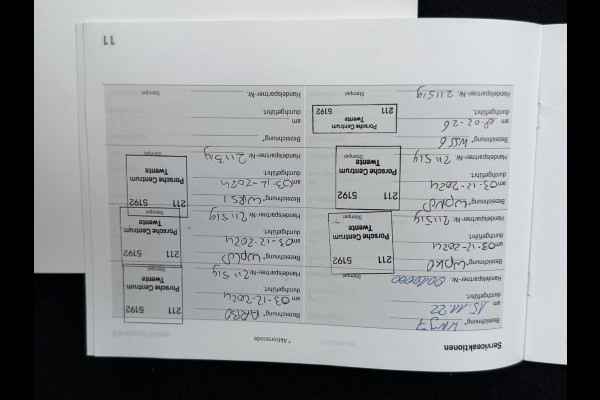 Serviceaktionen
* Aktionscode
Bezeichnung* WNJ7
am 15.11.22
durchgeführt.
Handelspartner-Nr. 0010000
Stempel
Bezeichnung* WPK0
am 03-12-2024
durchgeführt.
Handelspartner-Nr. 211519
Stempel
211 5192
Porsche Centrum
Twente
Bezeichnung*
am 03-12-2024
durchgeführt.
Handelspartner-Nr. 211519
Stempel
211 5192
Porsche Centrum
Twente
Bezeichnung* WSS6
am
durchgeführt.
Handelspartner-Nr. 211519
Stempel
211 5192
Porsche Centrum
Twente
Bezeichnung* ARB0
am 03-12-2024
durchgeführt.
Handelspartner-Nr. 211519
Stempel
211 5192
Porsche Centrum
Twente
Bezeichnung*
am 03-12-2024
durchgeführt.
Handelspartner-Nr. 211519
Stempel
211 5192
Porsche Centrum
Twente
Bezeichnung*
am 03-12-2024
durchgeführt.
Handelspartner-Nr. 211519
Stempel
211 5192
Porsche Centrum
Twente
Bezeichnung*
am
durchgeführt.
Handelspartner-Nr.
Stempel
11